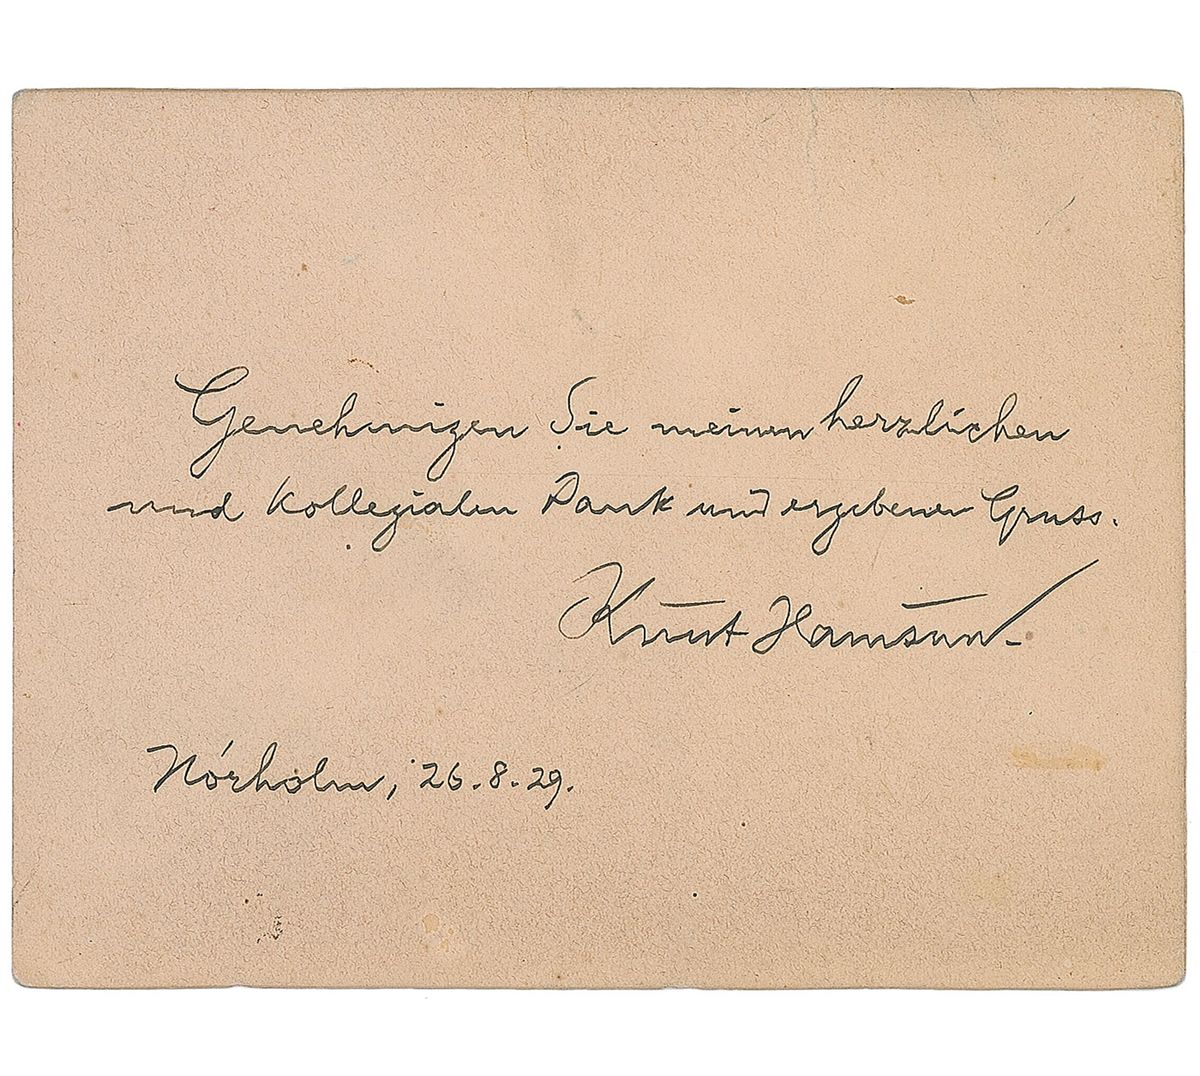 Genehmigen Sie meinen herzlichen
und kollegialen Dank und ergebenen Gruss.
Knut Hamsun.
Nörholm, 26.8.29.